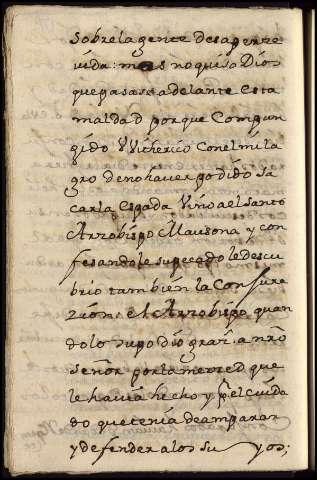 sobre la gente desaperce
vida: mas no quiso Dios
que pasase adelante esta
maldad porque Compun
gido VVitherico Con el mila
gro de no haver podido sa
car la espada Vino al Santo
Arzobispo Mausona y con
fesandole su pecado le descu
brio tambien la Conjura
zion: el Arzobispo quan
do lo supo dio gras. a nro
Señor por la merced que
le havia hecho y pr. el cuida
do que tenia de amparar
y defender a los su yos;